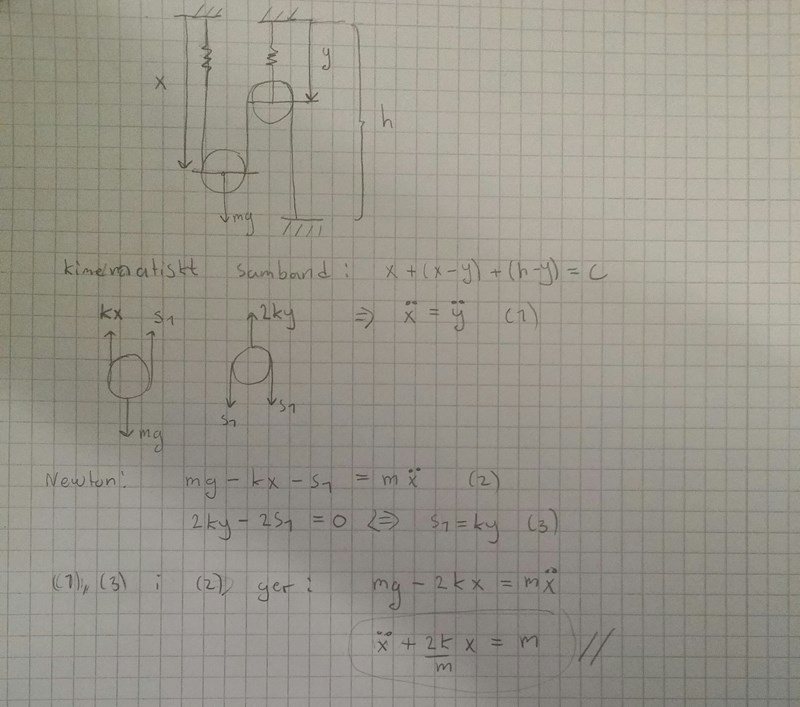 x
y
h
mg
kinematiskt samband: x + (x-y) + (h-y) = C
kx s1 2ky => ẍ = ÿ (1)
s1 s1
mg
Newton: mg - kx - s1 = mẍ (2)
2ky - 2s1 = 0 <=> s1 = ky (3)
(1), (3) i (2) ger: mg - 2kx = mẍ
ẍ + 2k/m x = m //